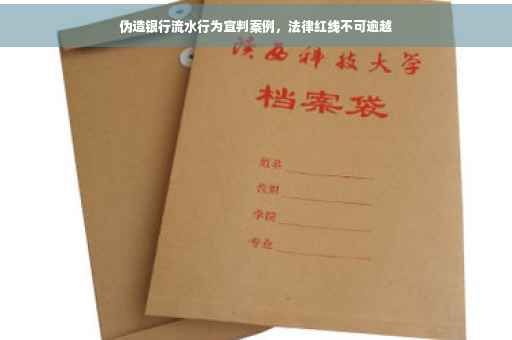 伪造银行流水行为宣判案例，法律红线不可逾越
陕西科技大学
档案袋
姓名
学院
专业